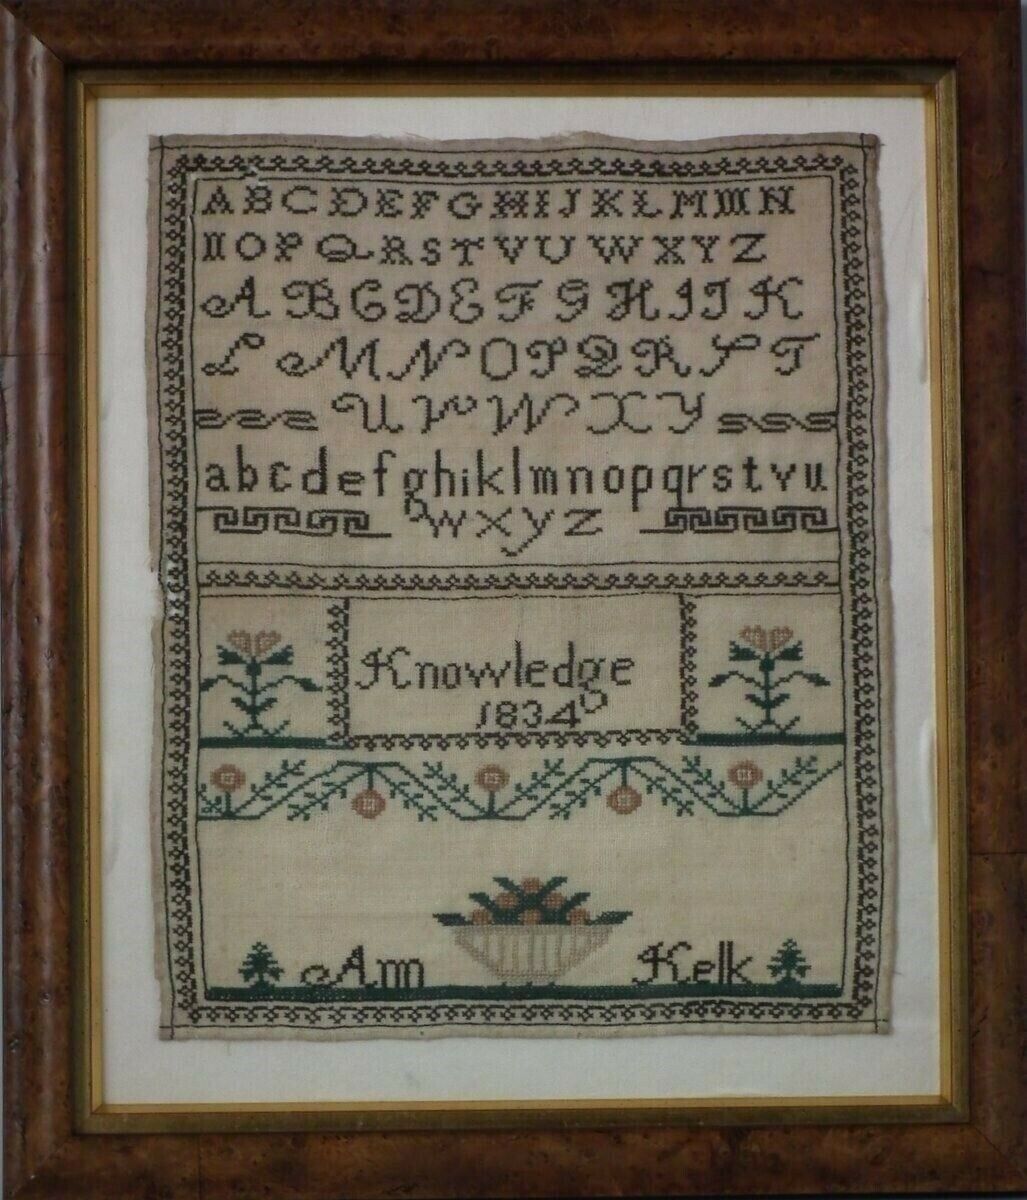 A B C D E F G H I J K L M M N
N O P Q R S T V U W X Y Z
A B C D E F G H I J K
L M N O P Q R S T
U V W X Y
a b c d e f g h i k l m n o p q r s t v u
w x y z
Knowledge
1834
Ann Kelk